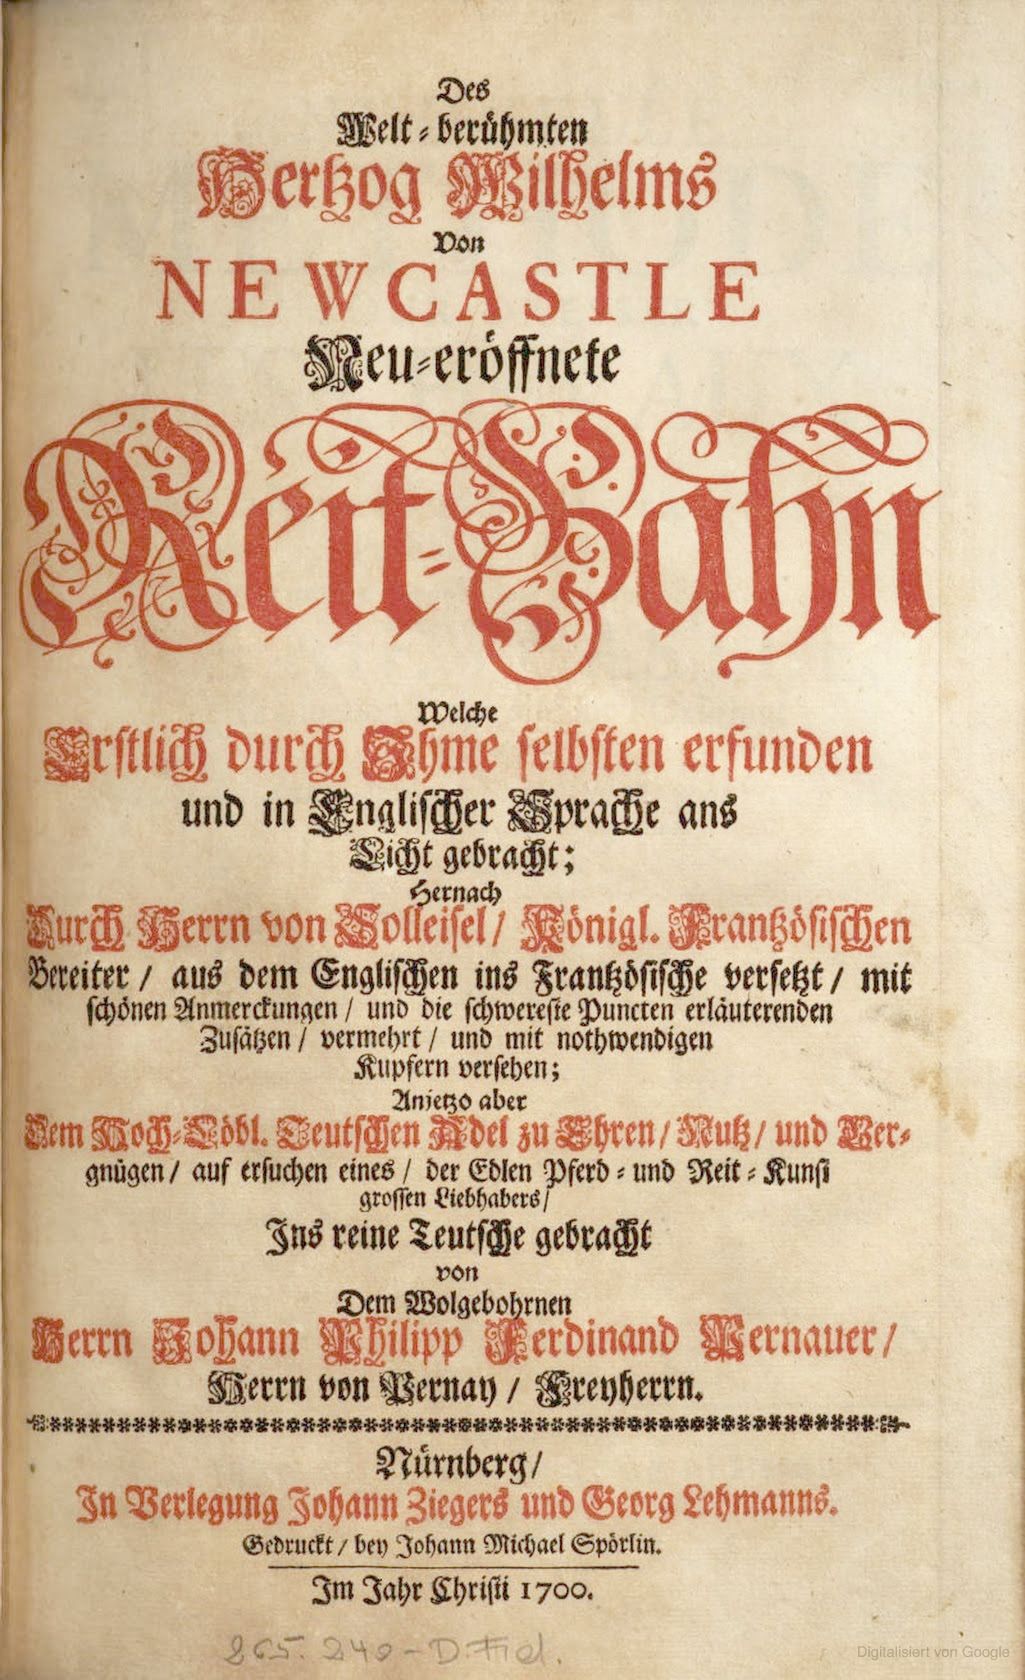 Des
Welt-berühmten
Hertzog Wilhelms
Von
NEWCASTLE
Neu-eröffnete
Reit-Bahn
Welche
Erstlich durch Ihme selbsten erfunden
und in Englischer Sprache ans
Licht gebracht;
Hernach
Durch Herrn von Solleisel / Königl. Frantzösischen
Bereiter / aus dem Englischen ins Frantzösische versetzt / mit
schönen Anmerckungen / und die schwereste Puncten erläuterenden
Zusätzen / vermehrt / und mit nothwendigen
Kupfern versehen;
Anjetzo aber
Dem Hoch-Löbl. Teutschen Adel zu Ehren / Nutz / und Ver-
gnügen / auf ersuchen eines / der Edlen Pferd- und Reit-Kunst
grossen Liebhabers /
Ins reine Teutsche gebracht
von
Dem Wolgebohrnen
Herrn Johann Philipp Ferdinand Pernauer /
Herrn von Pernay / Freyherrn.
Nürnberg /
In Verlegung Johann Ziegers und Georg Lehmanns.
Gedruckt / bey Johann Michael Spörlin.
Im Jahr Christi 1700.
265. 240-D. Fid.
Digitalisiert von Google